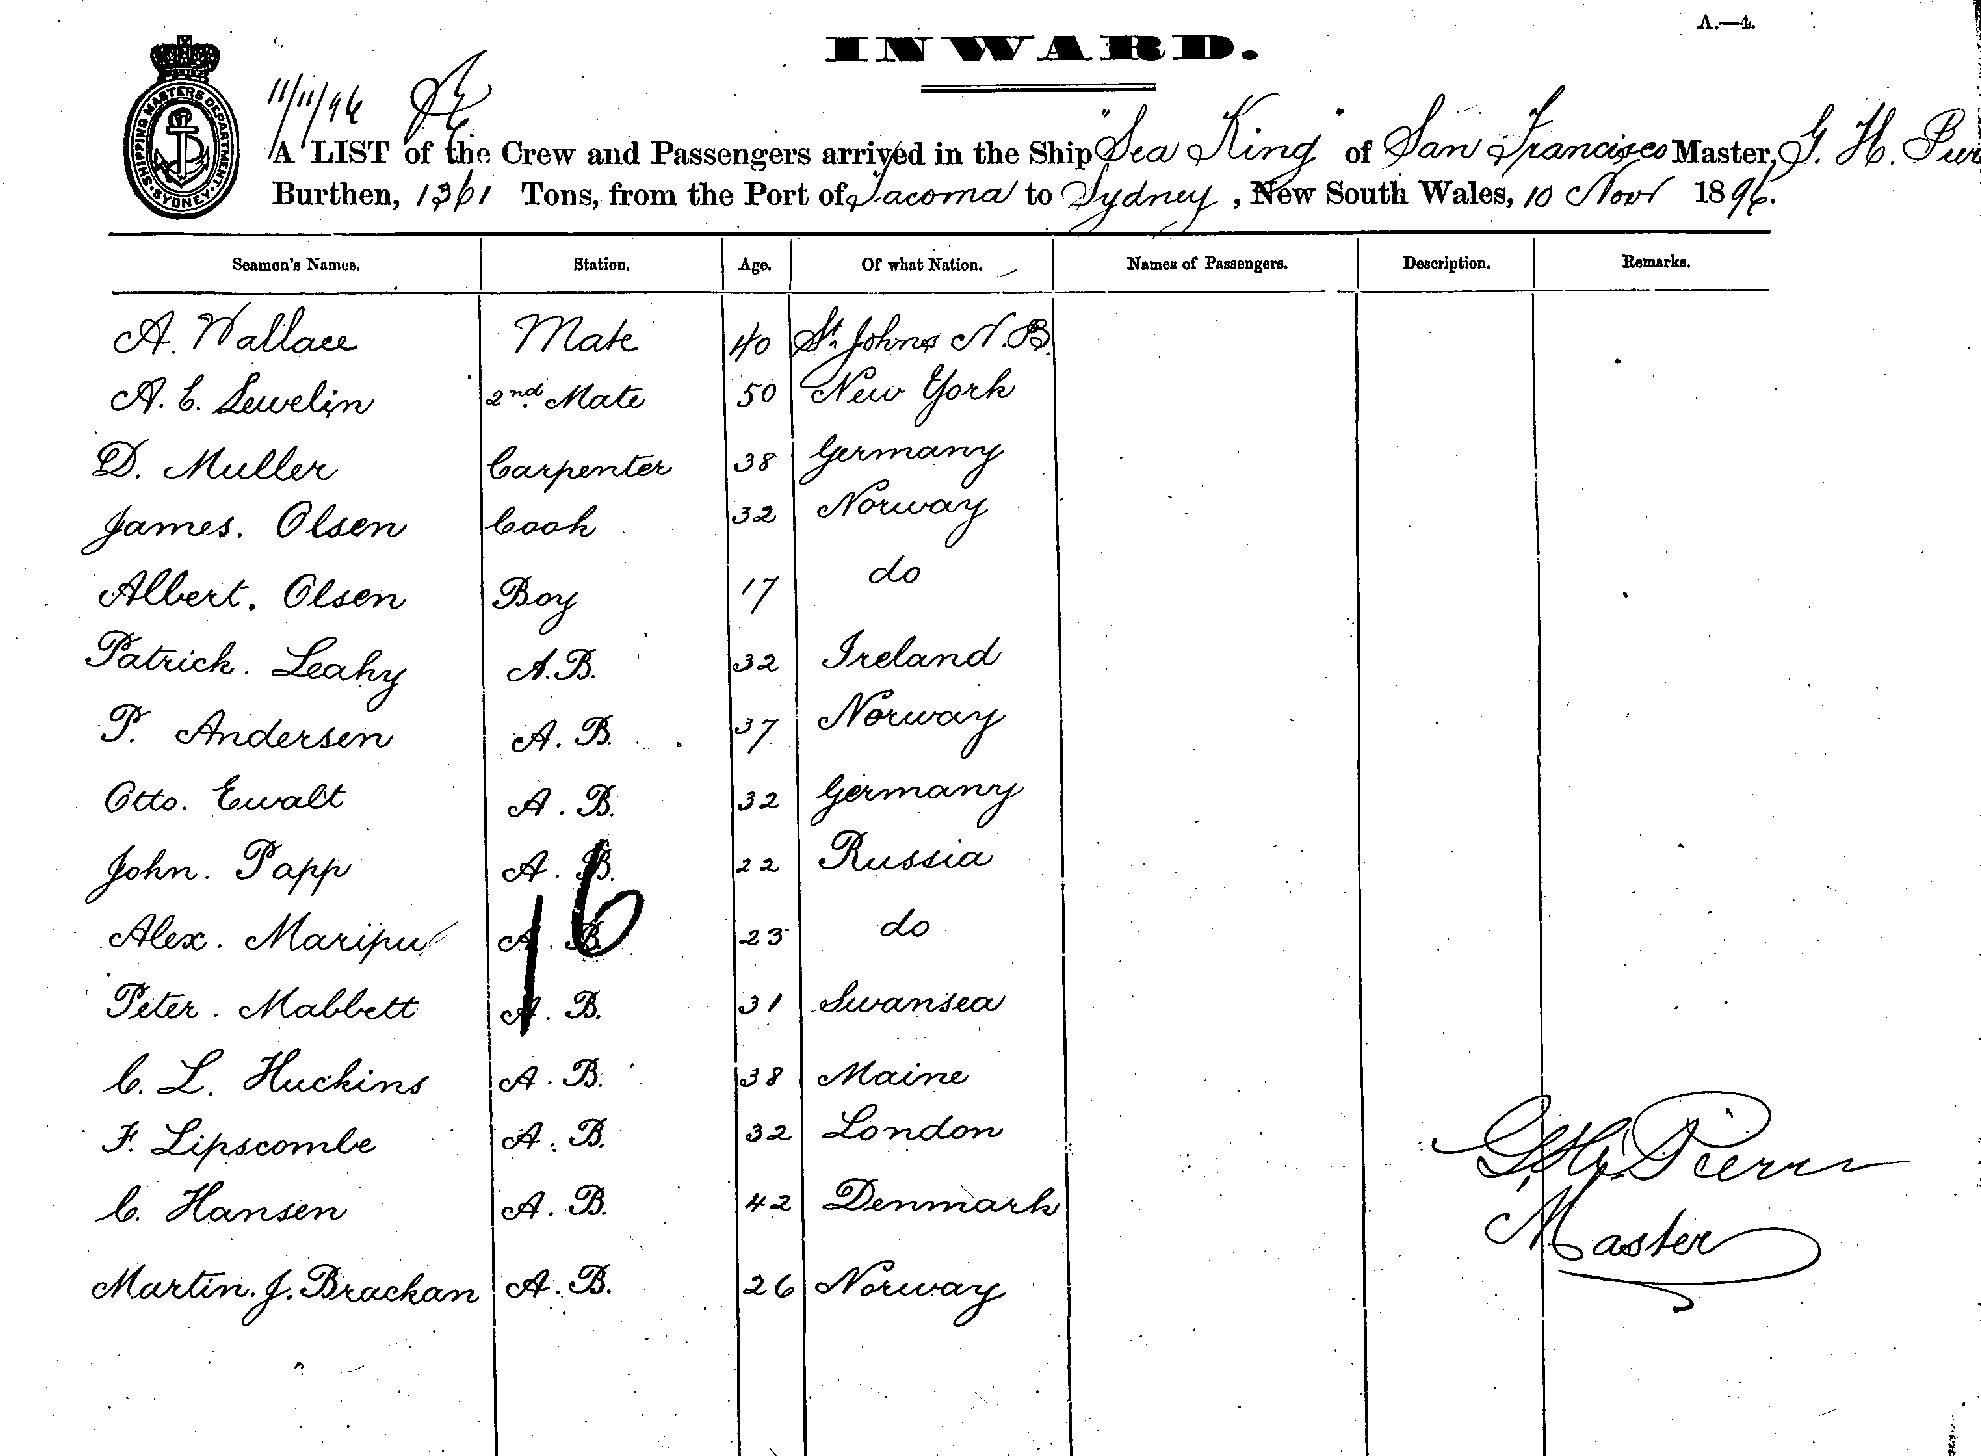 A.—4.
INWARD.
SHIPPING MASTERS DEPARTMENT SYDNEY
11/11/96
A LIST of the Crew and Passengers arrived in the Ship "Sea King" of San Francisco Master, G. H.
Burthen, 1361 Tons, from the Port of Tacoma to Sydney, New South Wales, 10 Novr 1896.
Seamen's Names. Station. Age. Of what Nation. Names of Passengers. Description. Remarks.
A. Wallace Mate 40 St. Johns N.B.
A. E. Lewelin 2nd Mate 50 New York
D. Muller Carpenter 38 Germany
James. Olsen Cook 32 Norway
Albert. Olsen Boy 17 do
Patrick. Leahy A.B. 32 Ireland
P. Andersen A. B. 37 Norway
Otto. Ewalt A. B. 32 Germany
John. Papp A. B. 22 Russia
Alex. Maripu A. B. 23 do
16
Peter. Mabbett A. B. 31 Swansea
C. L. Huckins A. B. 38 Maine
F. Lipscombe A. B. 32 London
C. Hansen A. B. 42 Denmark
Martin. J. Brackan A. B. 26 Norway
G. H.
Master